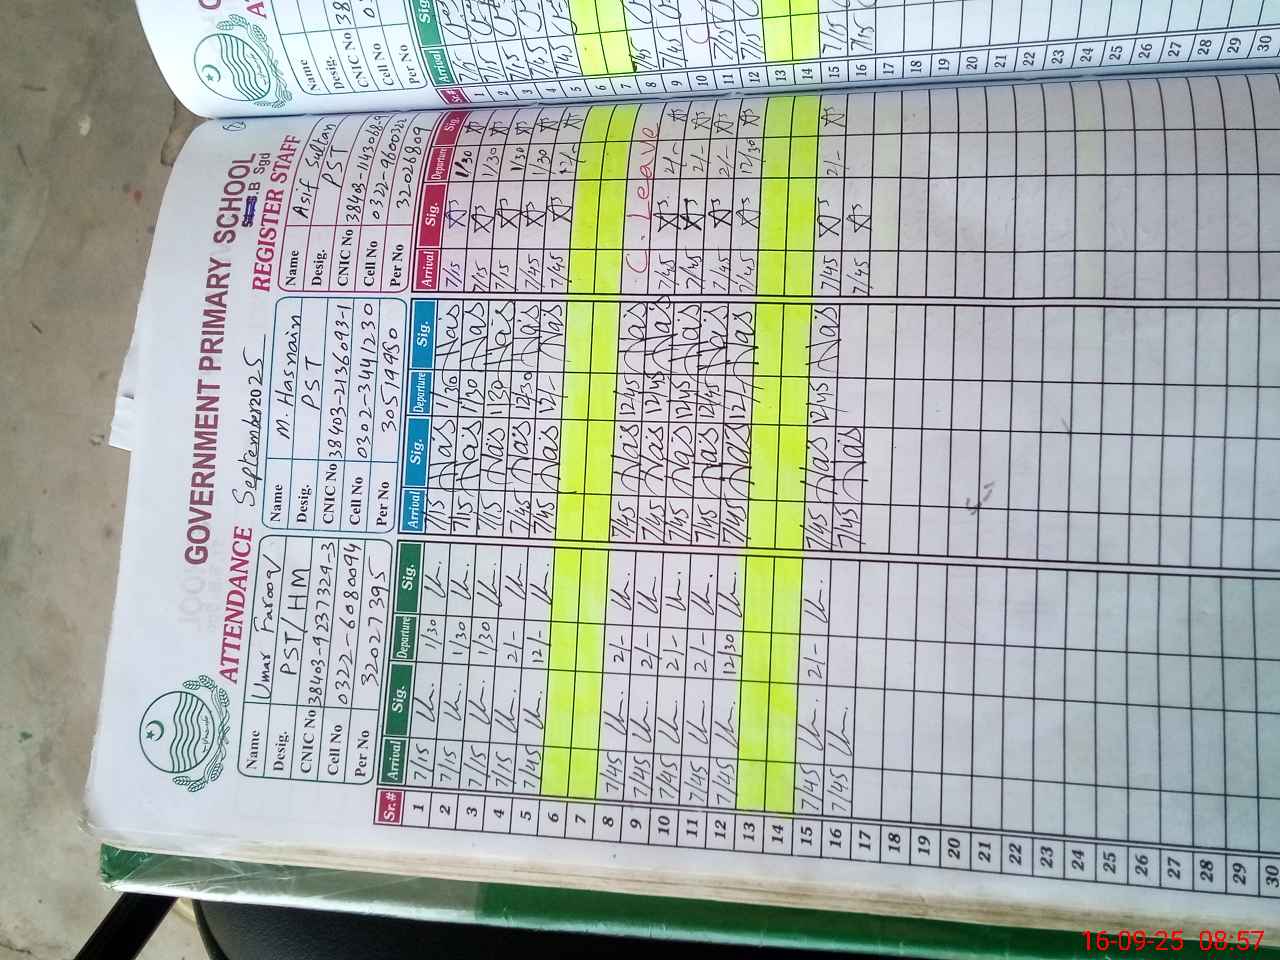 GOVERNMENT PRIMARY SCHOOL
S.B Sgd
ATTENDANCE September 2025 REGISTER STAFF
Name Umar Farooq Name M. Hasnain Name Asif Sultan
Desig. PST/HM Desig. PST Desig. PST
CNIC No 38403-9237324-3 CNIC No 38403-2136093-1 CNIC No
Cell No 0322-6080094 Cell No 0302-3441230 Cell No 0322-9600322
Per No 32027395 Per No 30519980 Per No 32026809
Sr.# Arrival Sig. Departure Sig. Arrival Sig. Departure Sig. Arrival Sig. Departure Sig.
1 7/15 1/30 7/15 1/30 7/15 1/30
2 7/15 1/30 7/15 1/30 7/15 1/30
3 7/15 1/30 7/15 1/30 7/15 1/30
4 7/15 2/- 7/45 12/30 7/45 1/30
5 7/45 12/- 7/45 12/- 7/45 12/-
6
7
8 7/45 2/- 7/45 12/45 C. Leave
9 7/45 2/- 7/45 12/45 7/45 2/-
10 7/45 2/- 7/45 12/45 7/45 2/-
11 7/45 2/- 7/45 12/45 7/45 2/-
12 7/45 12/30 7/45 12/- 7/45 12/30
13
14
15 7/45 2/- 7/45 12/45 7/45 2/-
16 7/45 7/45 7/45
17
18
19
20
21
22
23
24
25
26
27
28
29
30
Name
Desig.
CNIC No 38
Cell No
Per No
Sr.# Arrival Sig
1 7/15
2 7/15
3 7/45
4 7/45
5 7/45
6
7
8 7/45
9 7/45
10
11 7/15
12 7/15
13
14
15 7/15
16 7/15
17
18
19
20
21
22
23
24
25
26
27
28
29
30
16-09-25 08:57